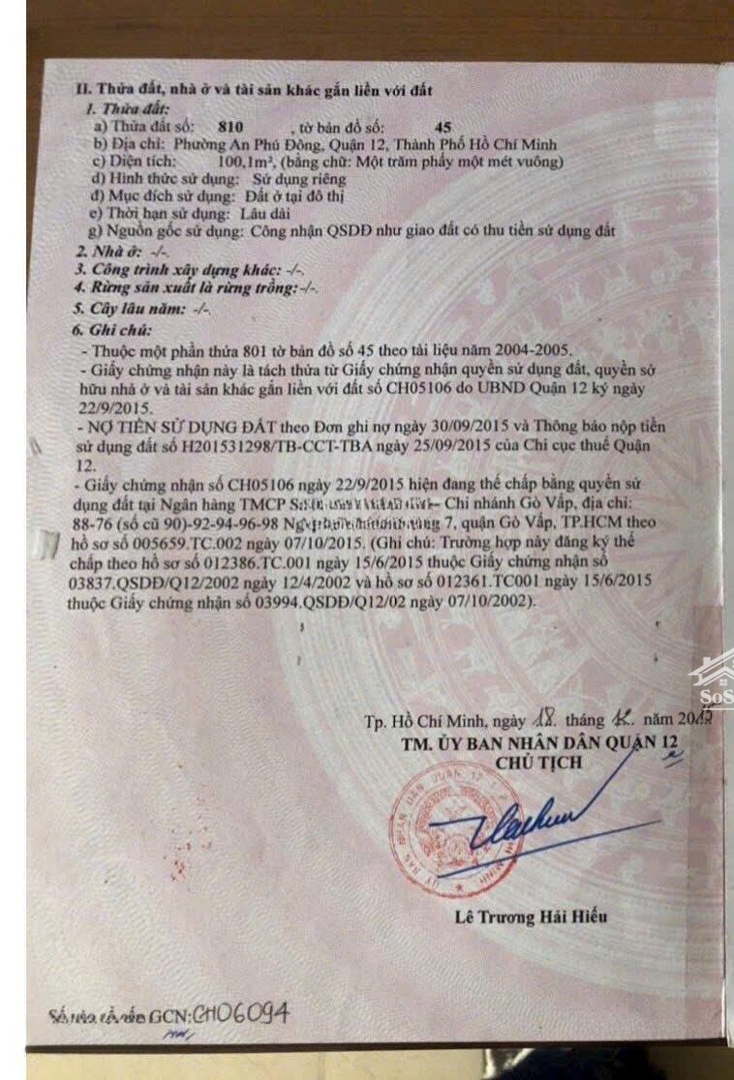 II. Thửa đất, nhà ở và tài sản khác gắn liền với đất
1. Thửa đất:
a) Thửa đất số: 810 , tờ bản đồ số: 45
b) Địa chỉ: Phường An Phú Đông, Quận 12, Thành Phố Hồ Chí Minh
c) Diện tích: 100,1m², (bằng chữ: Một trăm phẩy một mét vuông)
d) Hình thức sử dụng: Sử dụng riêng
đ) Mục đích sử dụng: Đất ở tại đô thị
e) Thời hạn sử dụng: Lâu dài
g) Nguồn gốc sử dụng: Công nhận QSDĐ như giao đất có thu tiền sử dụng đất
2. Nhà ở: -/-.
3. Công trình xây dựng khác: -/-.
4. Rừng sản xuất là rừng trồng:-/-.
5. Cây lâu năm: -/-.
6. Ghi chú:
- Thuộc một phần thửa 801 tờ bản đồ số 45 theo tài liệu năm 2004-2005.
- Giấy chứng nhận này là tách thửa từ Giấy chứng nhận quyền sử dụng đất, quyền sở
hữu nhà ở và tài sản khác gắn liền với đất số CH05106 do UBND Quận 12 ký ngày
22/9/2015.
- NỢ TIỀN SỬ DỤNG ĐẤT theo Đơn ghi nợ ngày 30/09/2015 và Thông báo nộp tiền
sử dụng đất số H201531298/TB-CCT-TBA ngày 25/09/2015 của Chi cục thuế Quận
12.
- Giấy chứng nhận số CH05106 ngày 22/9/2015 hiện đang thế chấp bằng quyền sử
dụng đất tại Ngân hàng TMCP – Chi nhánh Gò Vấp, địa chỉ:
88-76 (số cũ 90)-92-94-96-98 7, quận Gò Vấp, TP.HCM theo
hồ sơ số 005659.TC.002 ngày 07/10/2015. (Ghi chú: Trường hợp này đăng ký thế
chấp theo hồ sơ số 012386.TC.001 ngày 15/6/2015 thuộc Giấy chứng nhận số
03837.QSDĐ/Q12/2002 ngày 12/4/2002 và hồ sơ số 012361.TC001 ngày 15/6/2015
thuộc Giấy chứng nhận số 03994.QSDĐ/Q12/02 ngày 07/10/2002).
SoS
Tp. Hồ Chí Minh, ngày 18. tháng 12. năm 2015
TM. ỦY BAN NHÂN DÂN QUẬN 12
CHỦ TỊCH
ỦY BAN NHÂN DÂN QUẬN 12
Lê Trương Hải Hiếu
Số vào sổ cấp GCN:CH06094